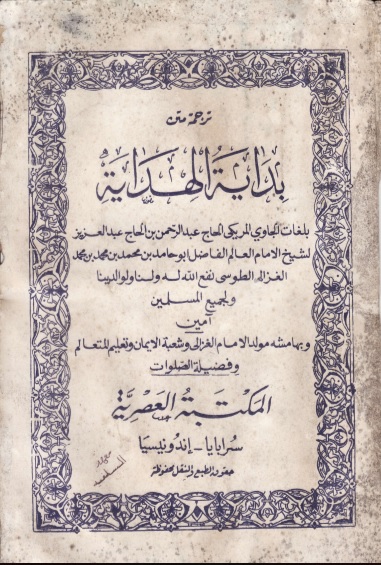 ترجمة متن
بداية الهداية
بلغات الجاوي المريكي الحاج عبد الرحمن بن الحاج عبد العزيز
لشيخ الامام العالم الفاضل ابو حامد بن محمد بن محمد بن محمد
الغزالى الطوسى نفع الله له ولنا ولوالدينا
ولجميع المسلمين
آمين
وبهامشه مولد الامام الغزالى وشعبة الايمان وتعليم المتعالم
وفضيلة الصلوات
المكتبة العصرية
سرابايا - إندونيسيا
حقوق الطبع والنقل محفوظة